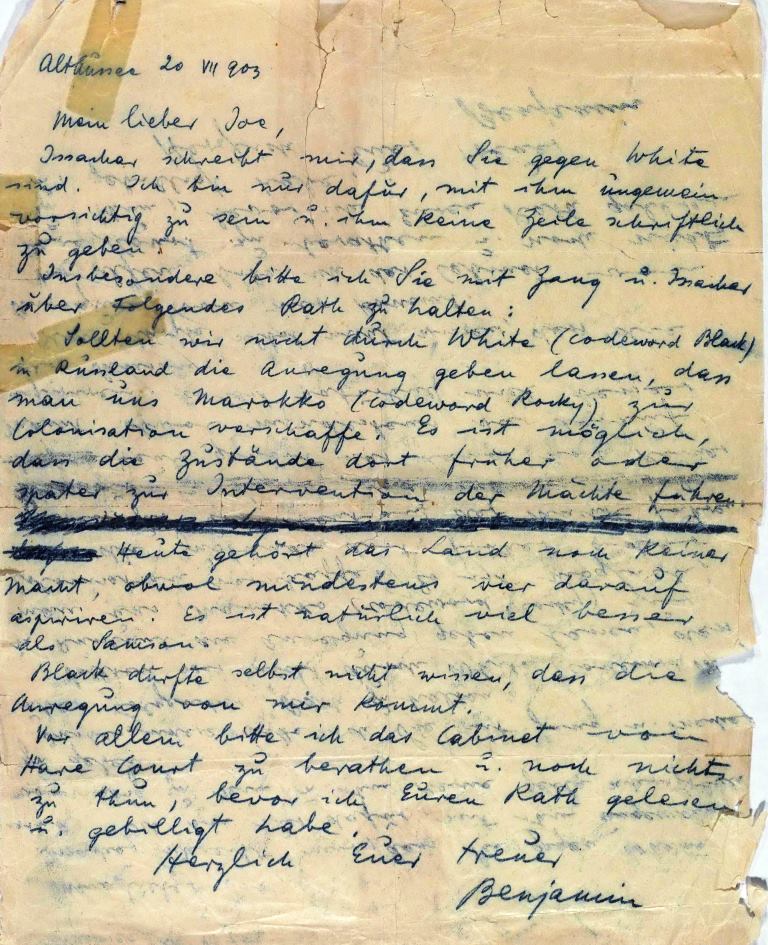 Altaussee 20 VII 903
Mein lieber Joe,
Issachar schreibt mir, dass Sie gegen White
sind. Ich bin nur dafür, mit ihm ungemein
vorsichtig zu sein u. ihm keine Zeile schriftlich
zu geben.
Insbesondere bitte ich Sie mit Zang u. Issachar
über Folgendes Rath zu halten:
Sollten wir nicht durch White (codeword Black)
in Russland die Anregung geben lassen, dass
man uns Marokko (codeword Rocky) zur
Colonisation verschaffe. Es ist möglich,
dass die Zustände dort früher oder
später zur Intervention der Mächte führen
Heute gehört das Land noch keiner
Macht, obwol mindestens vier darauf
aspiriren. Es ist natürlich viel besser
als Samson
Black dürfte selbst nicht wissen, dass die
Anregung von mir kommt.
Vor allem bitte ich das Cabinet von
Hare Court zu berathen u. noch nichts
zu thun, bevor ich Euren Rath gelesen
u. gebilligt habe.
Herzlich Euer treuer
Benjamin